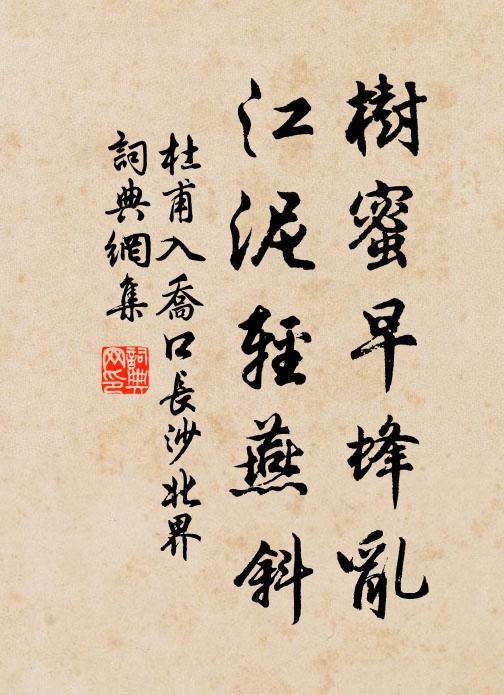 樹蜜早蜂亂
江泥輕燕斜
杜甫入喬口長沙北界
詞典網集
詞典網印